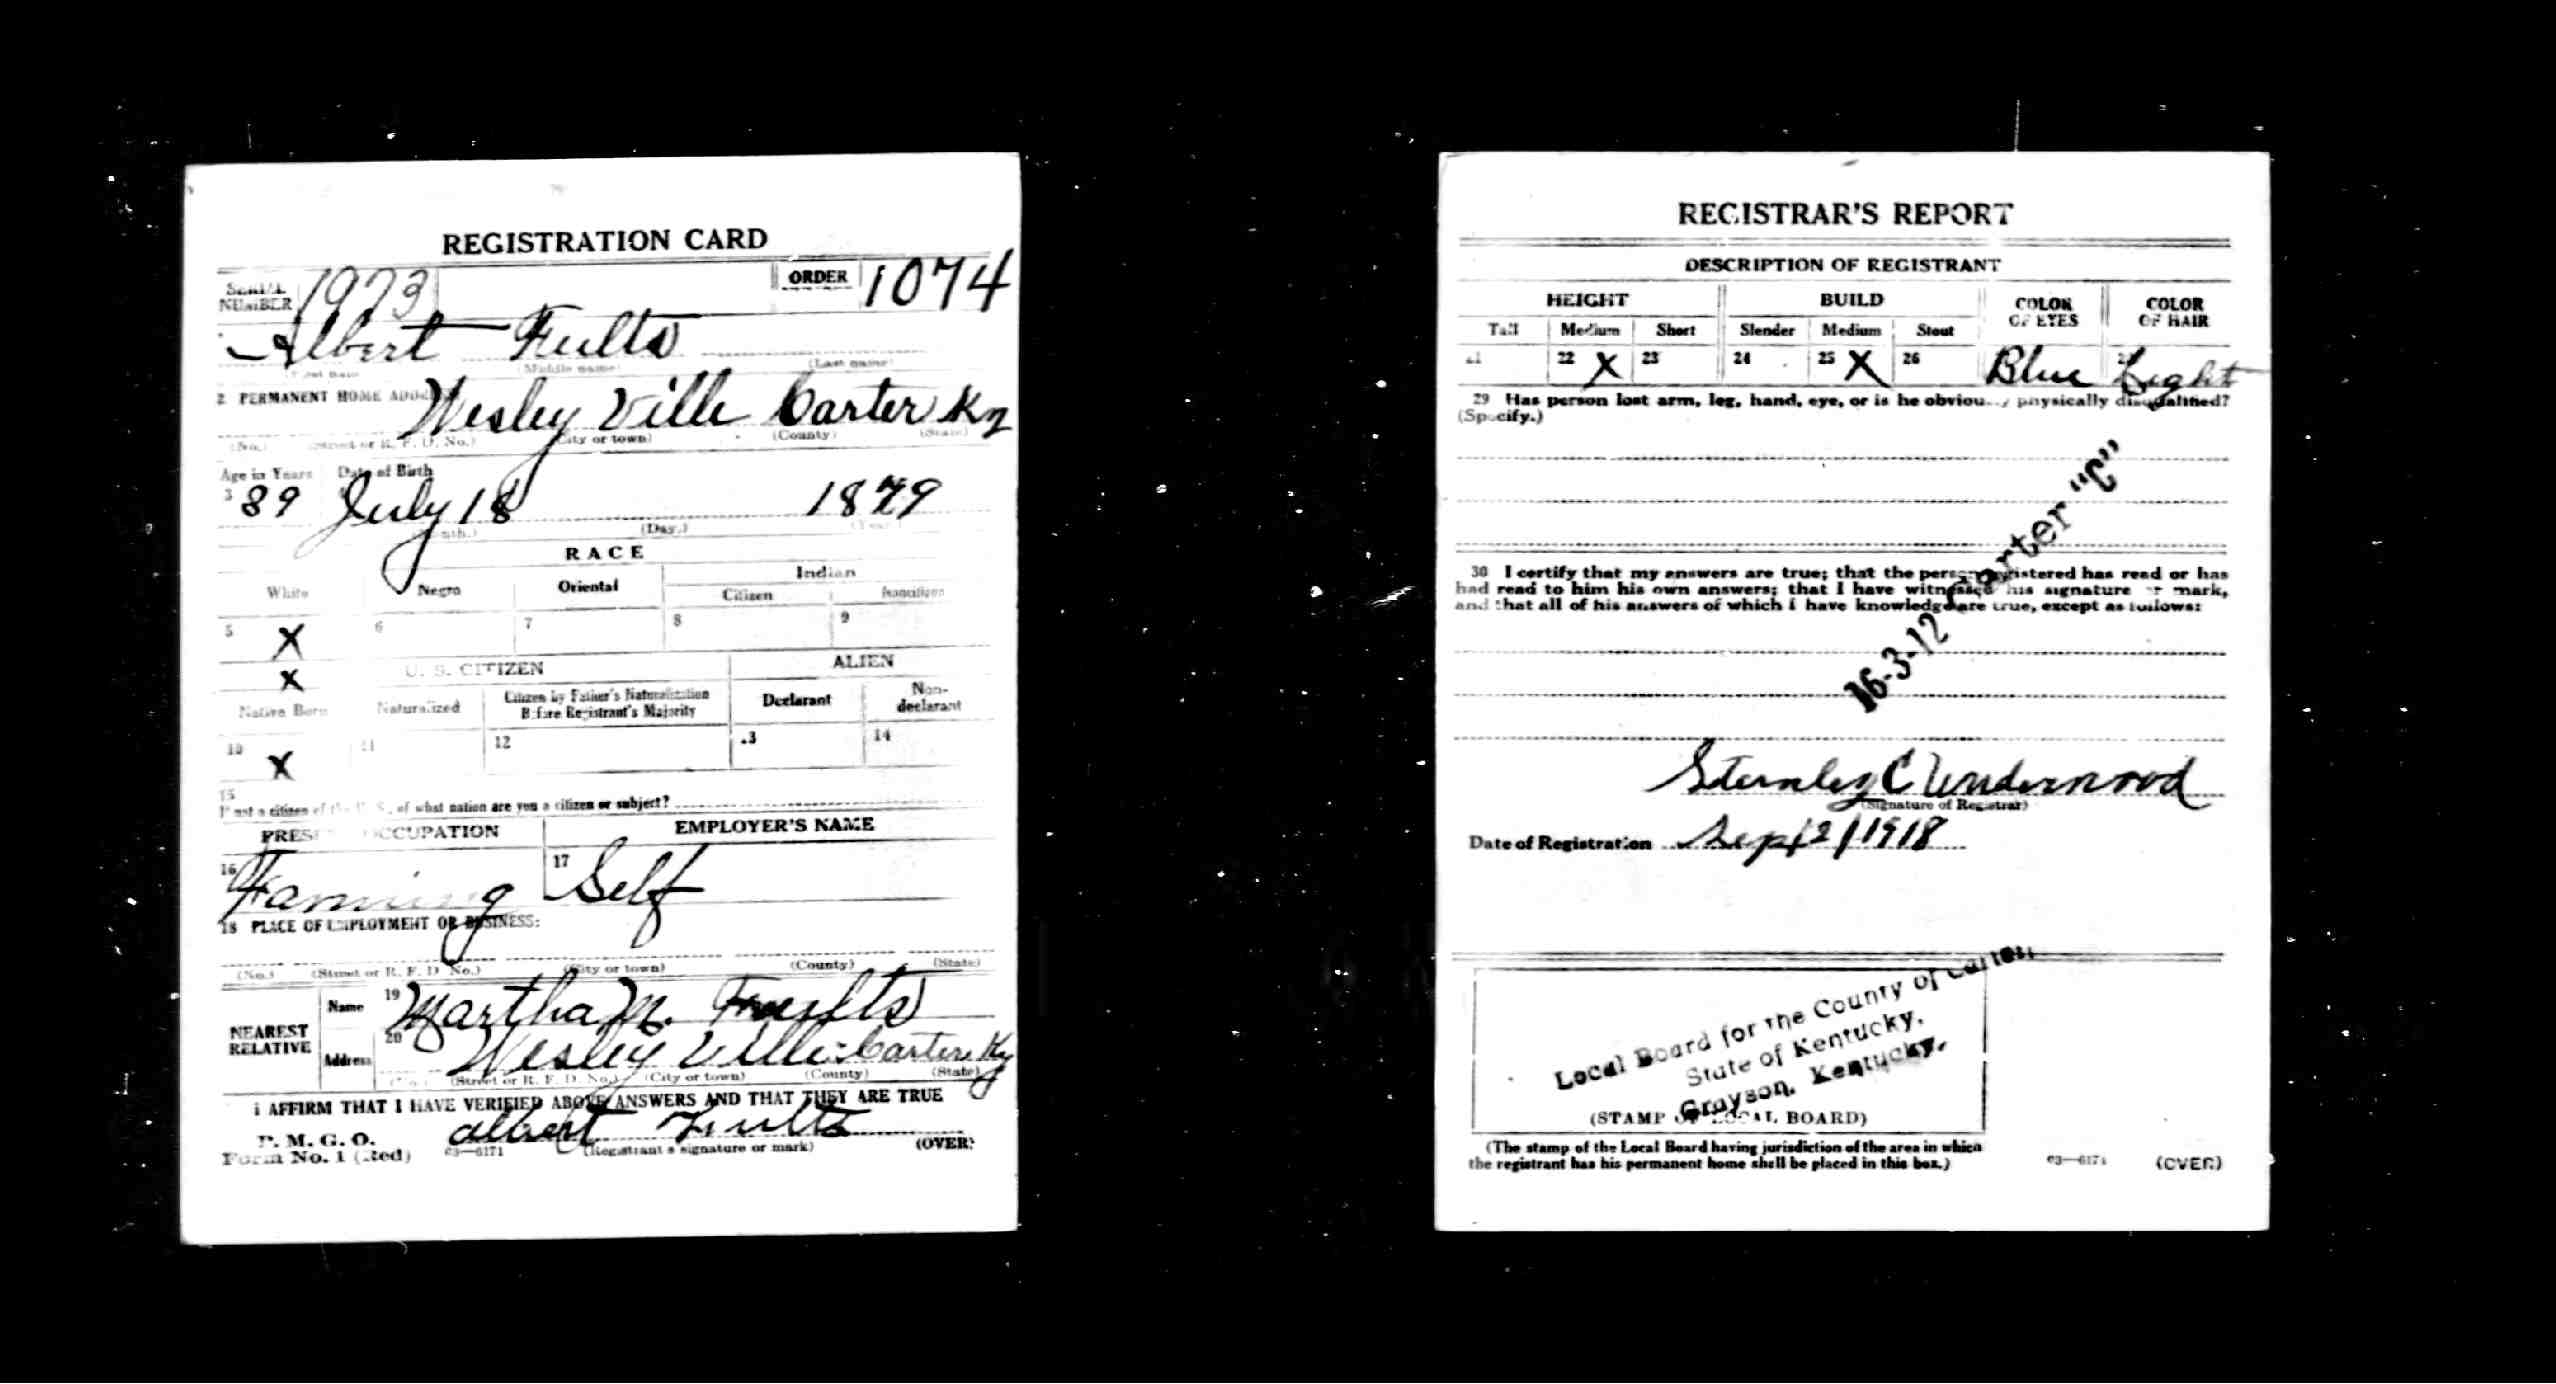 REGISTRATION CARD
SERIAL NUMBER 1973 ORDER 1074
Albert Fults
(First name) (Middle name) (Last name)
2 PERMANENT HOME ADDRESS Wesley Ville Carter Ky
(No.) (Street or R. F. D. No.) (City or town) (County) (State)
Age in Years Date of Birth
3 39 July 18 1879
(Month.) (Day.) (Year.)
RACE
White Negro Oriental Indian
Citizen Noncitizen
5 X 6 7 8 9
X U. S. CITIZEN ALIEN
Native Born Naturalized Citizen by Father's Naturalization Before Registrant's Majority Declarant Non-declarant
10 X 11 12 13 14
15
If not a citizen of the U. S., of what nation are you a citizen or subject?
PRESENT OCCUPATION EMPLOYER'S NAME
16 Farming 17 Self
18 PLACE OF EMPLOYMENT OR BUSINESS:
(No.) (Street or R. F. D. No.) (City or town) (County) (State)
NEAREST RELATIVE
Name 19 Martha M. Fults
Address 20 Wesley Ville Carter Ky
(No.) (Street or R. F. D. No.) (City or town) (County) (State)
I AFFIRM THAT I HAVE VERIFIED ABOVE ANSWERS AND THAT THEY ARE TRUE
P. M. G. O.
Form No. 1 (Red) 03—6171 albert Fults
(Registrant's signature or mark) (OVER)
REGISTRAR'S REPORT
DESCRIPTION OF REGISTRANT
HEIGHT BUILD COLOR OF EYES COLOR OF HAIR
Tall Medium Short Slender Medium Stout
21 22 X 23 24 25 X 26 Blue Light
29 Has person lost arm, leg, hand, eye, or is he obviously physically disqualified?
(Specify.)
30 I certify that my answers are true; that the person registered has read or has
had read to him his own answers; that I have witnessed his signature or mark,
and that all of his answers of which I have knowledge are true, except as follows:
16-3-12 Carter "C"
Sternley C Underwood
(Signature of Registrar)
Date of Registration Sep 12/1918
Local Board for the County of Carter,
State of Kentucky,
Grayson, Kentucky.
(STAMP OF LOCAL BOARD)
(The stamp of the Local Board having jurisdiction of the area in which
the registrant has his permanent home shall be placed in this box.)
03—6171 (OVER)